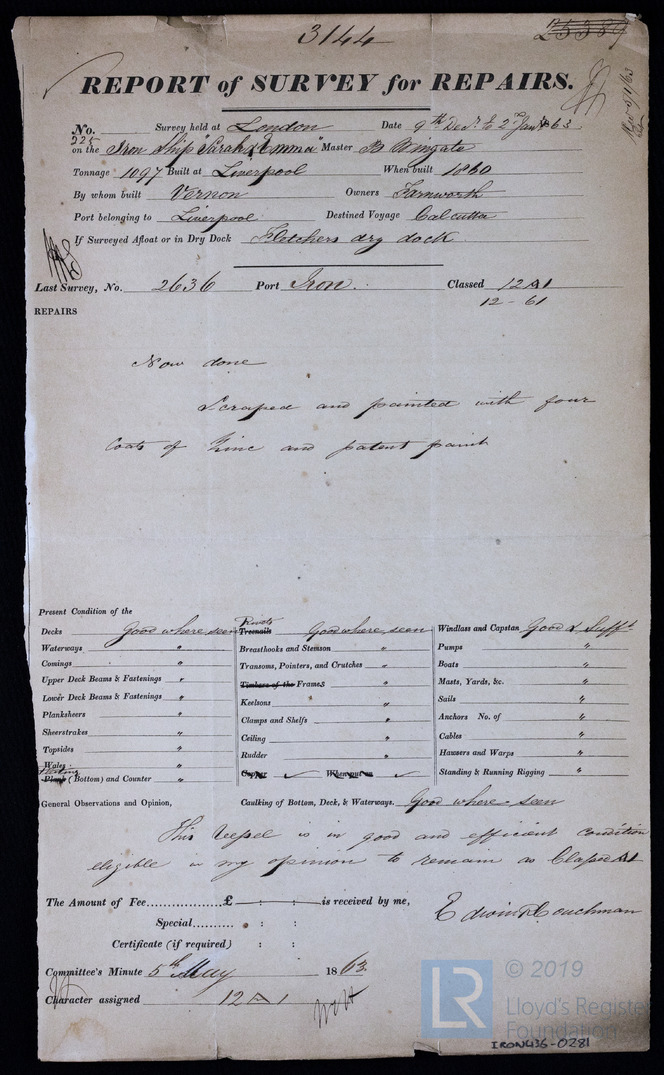 3144
25589
REPORT of SURVEY for REPAIRS.
No. 225 Survey held at London Date 9th Decr. & 2nd Jany 63
on the Iron Ship "Sarah & Emma" Master B Wingate
Tonnage 1097 Built at Liverpool When built 1860
By whom built Vernon Owners Farnworth
Port belonging to Liverpool Destined Voyage Calcutta
If Surveyed Afloat or in Dry Dock Fletchers dry dock
Last Survey, No. 2636 Port Iron. Classed 12 A1
12 - 61
REPAIRS
Now done
Scraped and painted with four
Coats of Zinc and patent paint
Present Condition of the
Decks Good where seen Rivets Treenails Good where seen Windlass and Capstan Good & Sufft
Waterways " Breasthooks and Stemson " Pumps "
Comings " Transoms, Pointers, and Crutches " Boats "
Upper Deck Beams & Fastenings " Timbers of the Frames " Masts, Yards, &c. "
Lower Deck Beams & Fastenings " Keelsons " Sails "
Planksheers " Clamps and Shelfs " Anchors No. of "
Sheerstrakes " Ceiling " Cables "
Topsides " Rudder " Hawsers and Warps "
Wales " Copper When put on Standing & Running Rigging "
Plating Plank (Bottom) and Counter "
General Observations and Opinion, Caulking of Bottom, Deck, & Waterways. Good where seen
This Vessel is in good and efficient condition
eligible in my opinion to remain as Classed A1
The Amount of Fee............... £ : : is received by me,
Special......... : :
Certificate (if required) : :
Edwin Couchman
Committee's Minute 5th May 1863
Character assigned 12 A 1
LR © 2019
Lloyd's Register
Foundation
IRON436-0281